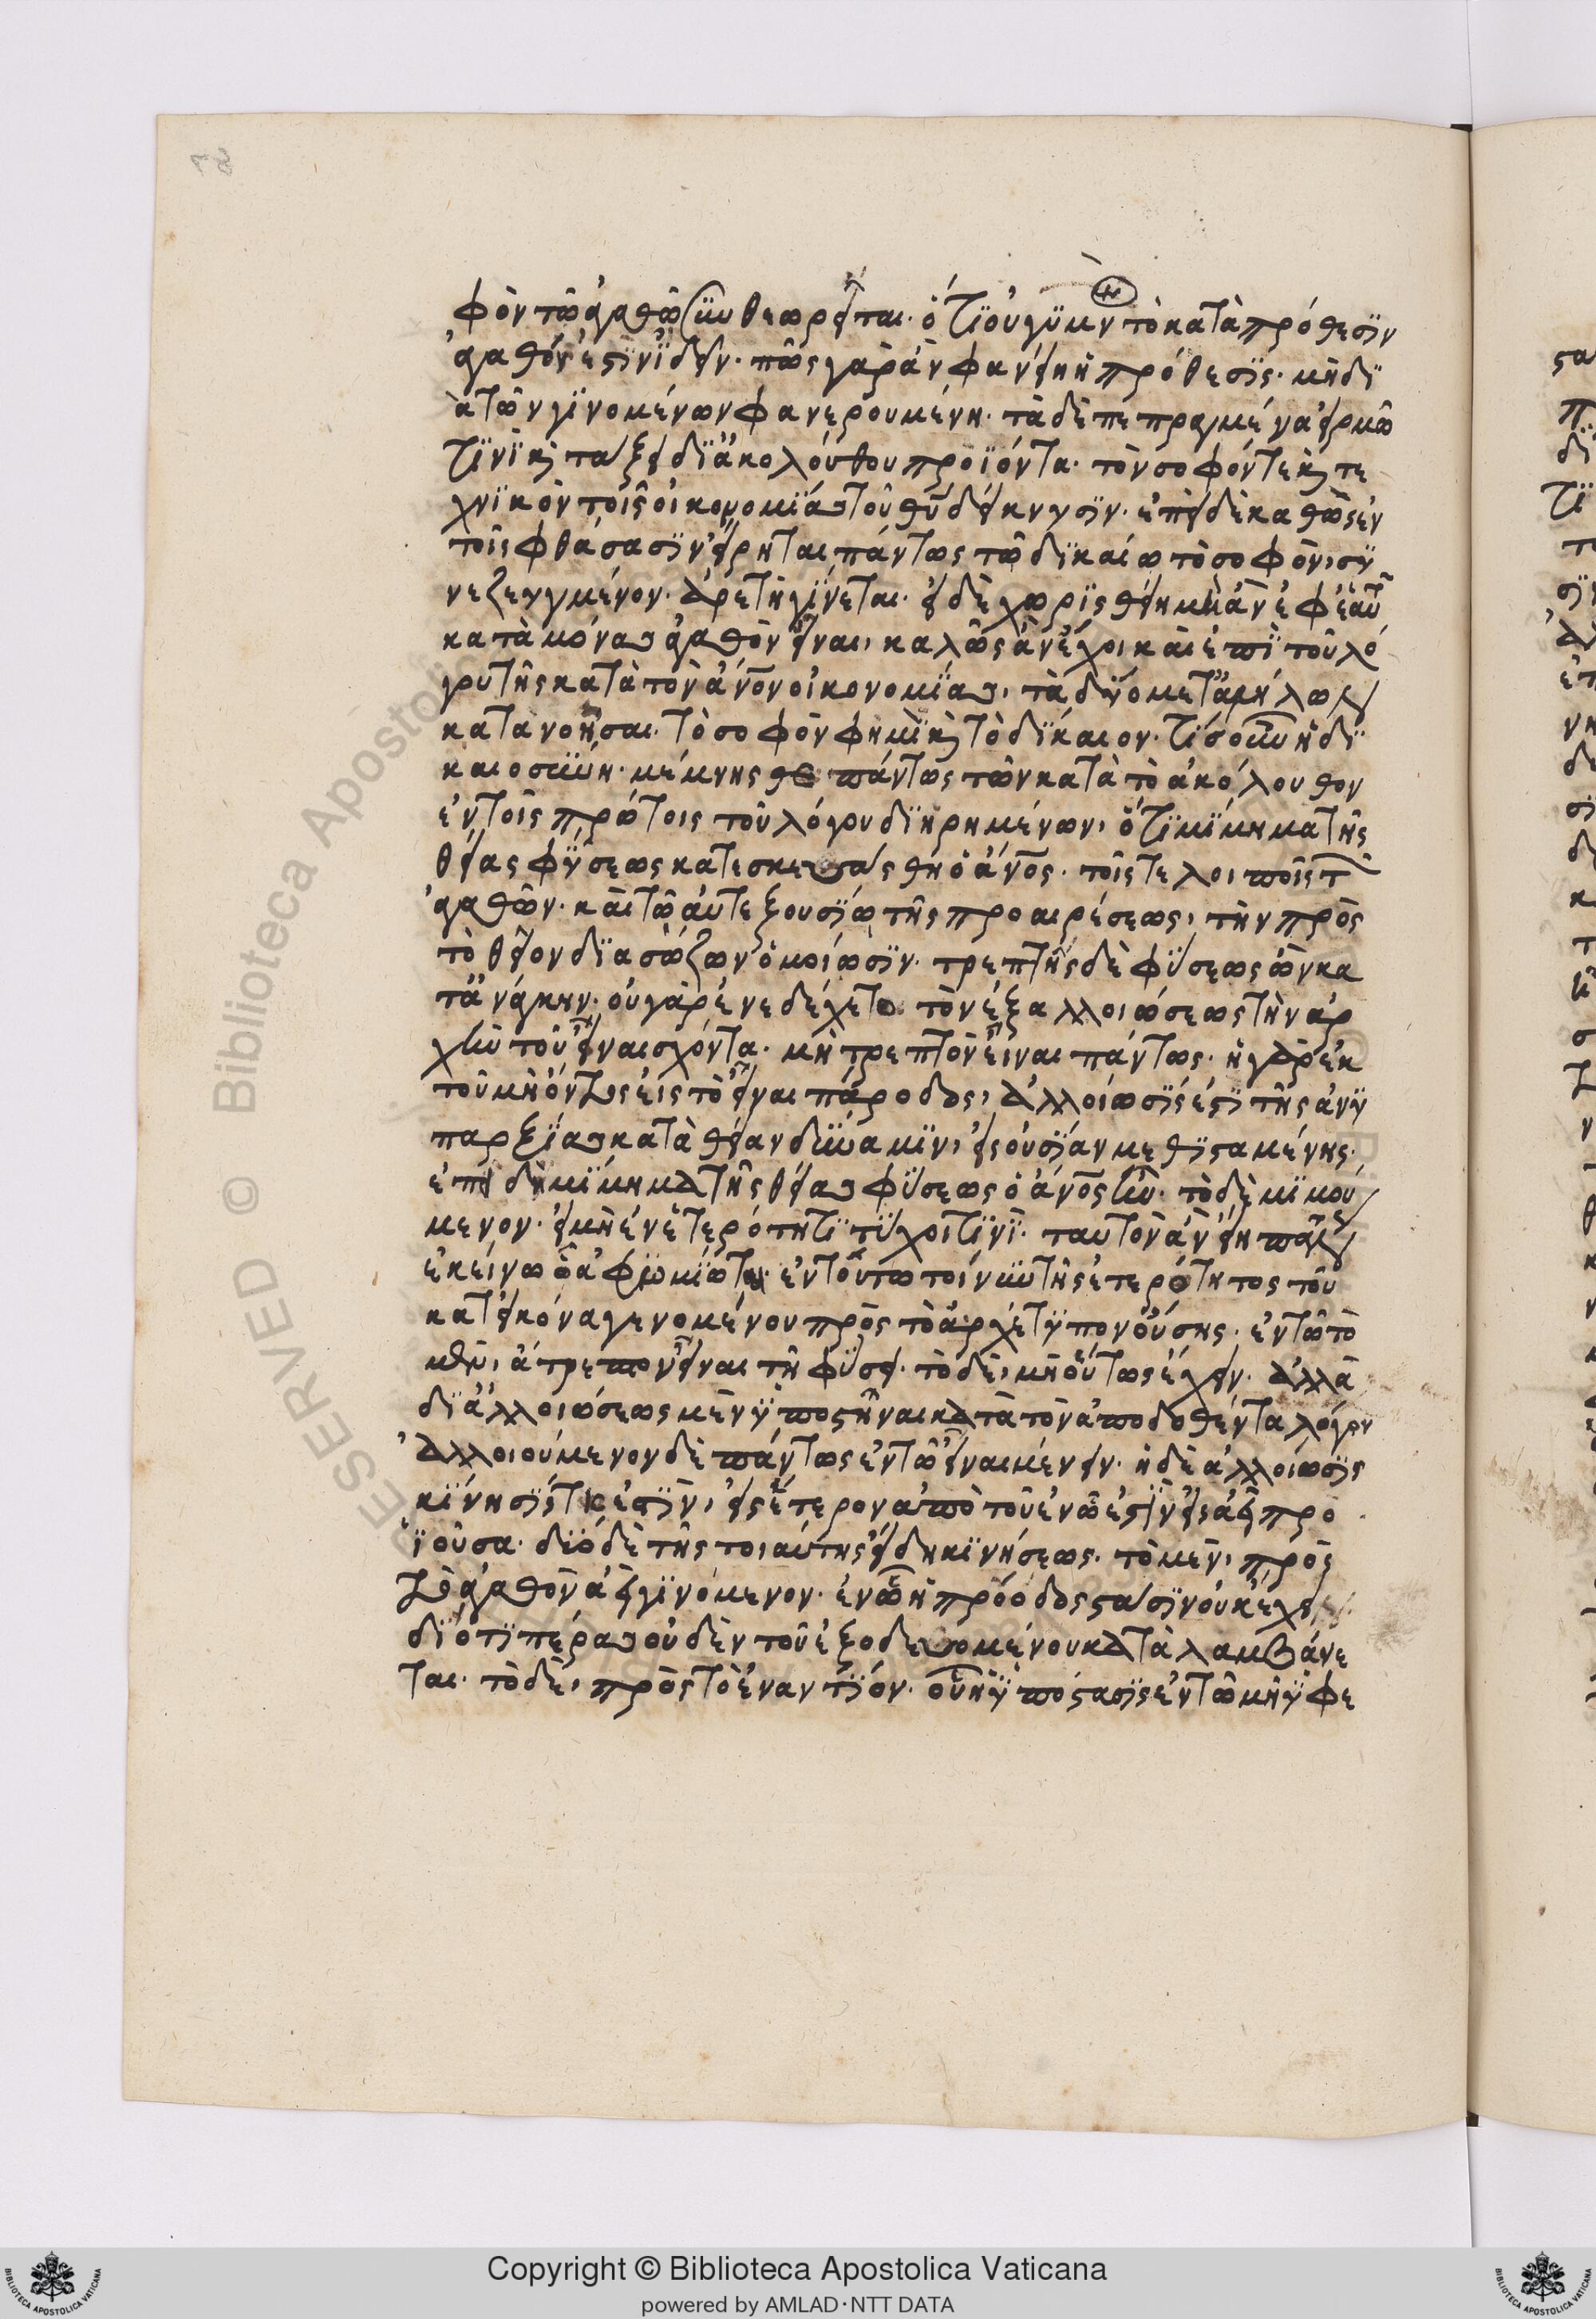 φὸν τῶ ἀγαθῶ συνθεωρεῖται. ὅτι οὐ γυμνὸν τὸ κατὰ πρόθεσιν
ἀγαθόν ἐστιν ἰδεῖν. πῶς γὰρ ἂν φανείη ἡ πρόθεσις. μὴ δι
ὰ τῶν γινομένων φανερουμένη. τὰ δὲ πεπραγμένα εἱρμῶ
τινὶ κ τάξει δι ἀκολούθου προϊόντα. τὸν σοφόν τε κ τε
χνικὸν τοῖς οἰκονομίας τοῦ θυ δείκνυσιν. ἐπεὶ δὲ καθὼς ἐν
τοῖς φθάσασιν εἴρηται πάντως τῶ δικαίω τὸ σοφὸν, συ
νεζευγμένον. ἀρετὴ γίνεται. εἰ δὲ χωρισθείη μὴ ἂν ἐφ ἑαυτοῦ
κατὰ μόνας ἀγαθὸν εἶναι, καλῶς ἂν ἔχοι καὶ ἐπὶ τοῦ λό
γου τῆς κατὰ τὸν ἄνον οἰκονομίας, τὰ δύο μετ ἀλλήλων
κατανοῆσαι. τὸ σοφὸν φημὶ κ τὸ δίκαιον. τίς οὖν ἡ δι
καιοσύνη. μέμνησθε πάντως τῶν κατὰ τὸ ἀκόλουθον
ἐν τοῖς πρώτοις τοῦ λόγου διηρημένων, ὅτι μίμημα τῆς
θείας φύσεως κατεσκευάσθη ὁ ἄνος. τοῖς τε λοιποῖς τῶν
ἀγαθῶν. καὶ τῶ αὐτεξουσίω τῆς προαιρέσεως, τὴν πρὸς
τὸ θεῖον διασώζων ὁμοίωσιν. τρεπτῆς δὲ φύσεως ὢν κα
τ ἀνάγκην. οὐ γὰρ ἐνεδέχετο τὸν ἐξ ἀλλοιώσεως τὴν ἀρ
χὴν τοῦ εἶναι σχόντα. μὴ τρεπτὸν εἶναι πάντως. ἡ γὰρ ἐκ
τοῦ μὴ ὄντος εἰς τὸ εἶναι πάροδος, ἀλλοίωσίς ἐστι τῆς ἀνυ
παρξίας κατὰ θείαν δύναμιν, εἰς οὐσίαν μεθισταμένης.
ἐπεὶ δὴ μίμημα τῆς θείας φύσεως ὁ ἄνος ἦν. τὸ δὲ μιμού
μενον. εἰ μὴ ἐν ἑτερότητι τύχοι τινὶ. ταυτὸν ἂν εἴη πάντως
ἐκείνω ᾧ ἀφωμοίωται. ἐν τούτω τοίνυν τῆς ἑτερότητος τοῦ
κατ εἰκόνα γενομένου πρὸς τὸ ἀρχέτυπον οὔσης. ἐν τῶ τὸ
μὲν, ἄτρεπτον εἶναι τῆ φύσει. τὸ δὲ, μὴ οὕτως ἔχειν. ἀλλὰ
δι ἀλλοιώσεως μὲν ὑποστῆναι κατὰ τὸν ἀποδοθέντα λόγον
ἀλλοιούμενον δὲ πάντως ἐν τῶ εἶναι μένειν. ἡ δὲ ἀλλοίωσις
κίνησίς τις ἐστὶν, εἰς ἕτερον ἀπὸ τοῦ ἐν ᾧ ἐστὶν εἰς ἀεὶ προ
ϊοῦσα. δύο δὲ τῆς τοιαύτης εἴδη κινήσεως. τὸ μὲν, πρὸς
τὸ ἀγαθὸν ἀεὶ γινόμενον. ἐν ᾧ ἡ πρόοδος στάσιν οὐκ ἔχει,
διότι πέρας οὐδὲν τοῦ ἐξοδευομένου καταλαμβάνε
ται. τὸ δὲ, πρὸς τὸ ἐναντίον. οὗ ἡ ὑπόστασις ἐν τῶ μὴ ὑφε